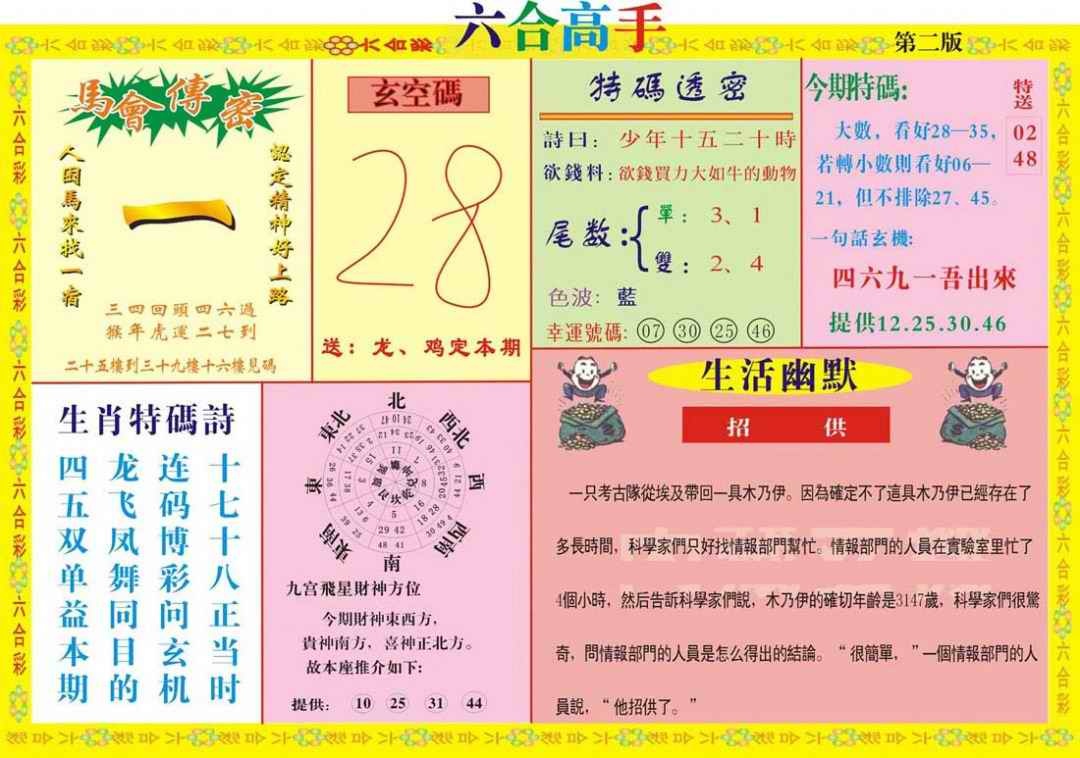 六合高手
第二版
馬會傳密
人因馬來找一宿
一
認定精神好上路
三四回頭四六過
猴年虎運二七到
二十五樓到三十九樓十六樓見碼
玄空碼
28
送：龙、鸡定本期
特碼透密
詩曰：少年十五二十時
欲錢料：欲錢買力大如牛的動物
尾数：
單：3、1
雙：2、4
色波：藍
幸運號碼：07 30 25 46
今期特碼：
特送
02
48
大數，看好28—35，
若轉小數則看好06—
21，但不排除27、45。
一句話玄機：
四六九一吾出來
提供12.25.30.46
生肖特碼詩
四龙连十
五飞码七
双凤博十
单舞彩八
益同问正
本目玄当
期的机时
北
東北
西北
東
西
東南
西南
南
九宫飛星財神方位
今期財神東西方，
貴神南方，喜神正北方。
故本座推介如下：
提供：10 25 31 44
生活幽默
招供
一只考古隊從埃及帶回一具木乃伊。因為確定不了這具木乃伊已經存在了
多長時間，科學家們只好找情報部門幫忙。情報部門的人員在實驗室里忙了
4個小時，然后告訴科學家們說，木乃伊的確切年齡是3147歲，科學家們很驚
奇，問情報部門的人員是怎么得出的結論。“很簡單，”一個情報部門的人
員說，“他招供了。”
六合彩